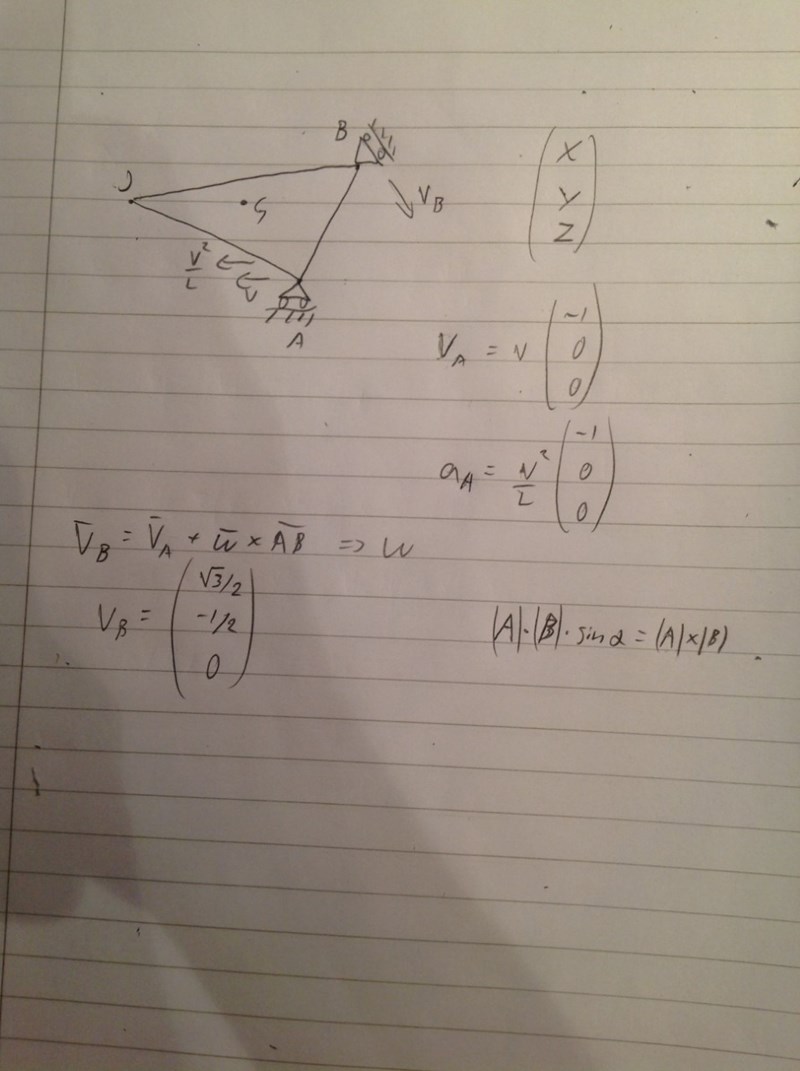 B
S
V_B
V²/L
V
A
(X
Y
Z)
V_A = V (-1
0
0)
a_A = V²/L (-1
0
0)
V̄_B = V̄_A + w̄ × A̅B̅ => W
V_B = (√3/2
-1/2
0)
|A|·|B|·sin α = |A|×|B|